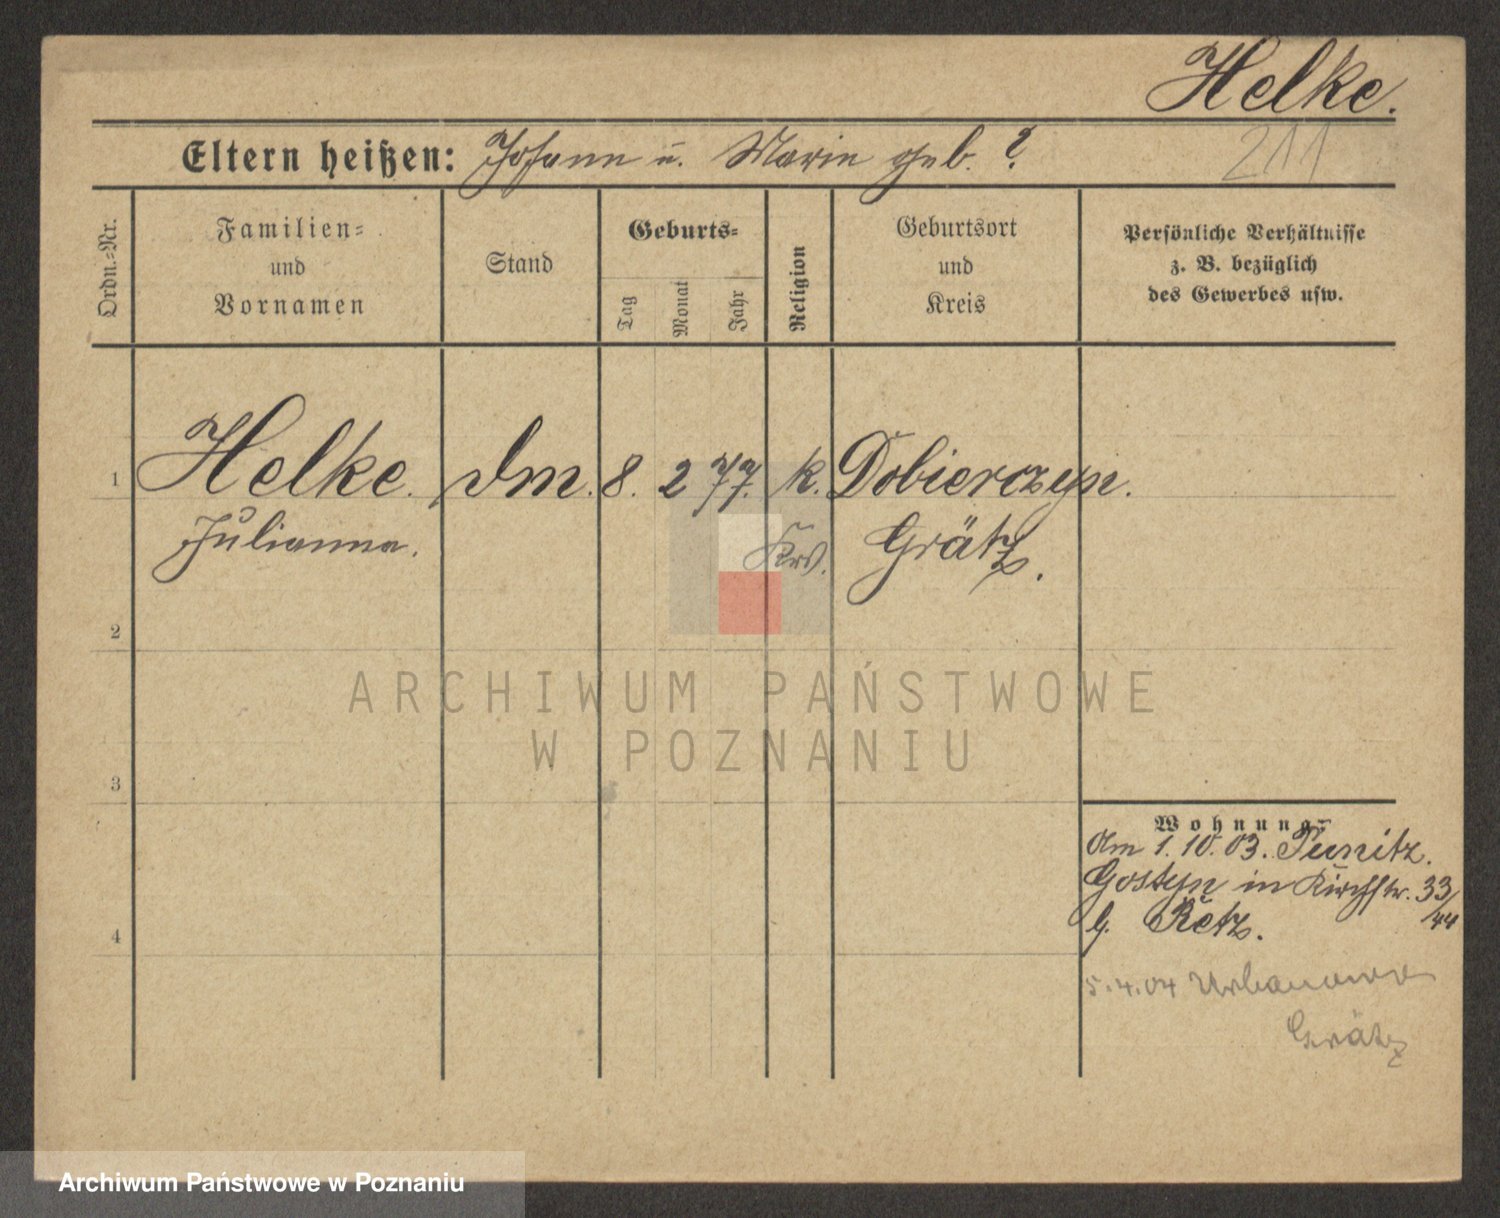 Helke.
211
Eltern heißen: Johann u. Marie geb. ?
Ordn.-Nr.
Familien-
und
Vornamen
Stand
Geburts-
Tag
Monat
Jahr
Religion
Geburtsort
und
Kreis
Persönliche Verhältnisse
z. B. bezüglich
des Gewerbes usw.
1
Helke. Dm. 8. 2 77. k. Dobierczyn.
Julianna. Krs. Grätz.
2
ARCHIWUM PAŃSTWOWE
W POZNANIU
3
Wohnung
Am 1.10.03. Punitz.
Gostyn in Kirchstr. 33/44
b. Retz.
4
5.4.04 Urbanowo
Grätz
Archiwum Państwowe w Poznaniu